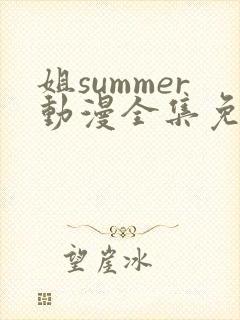 姐summer
動漫全集免
望崖冰